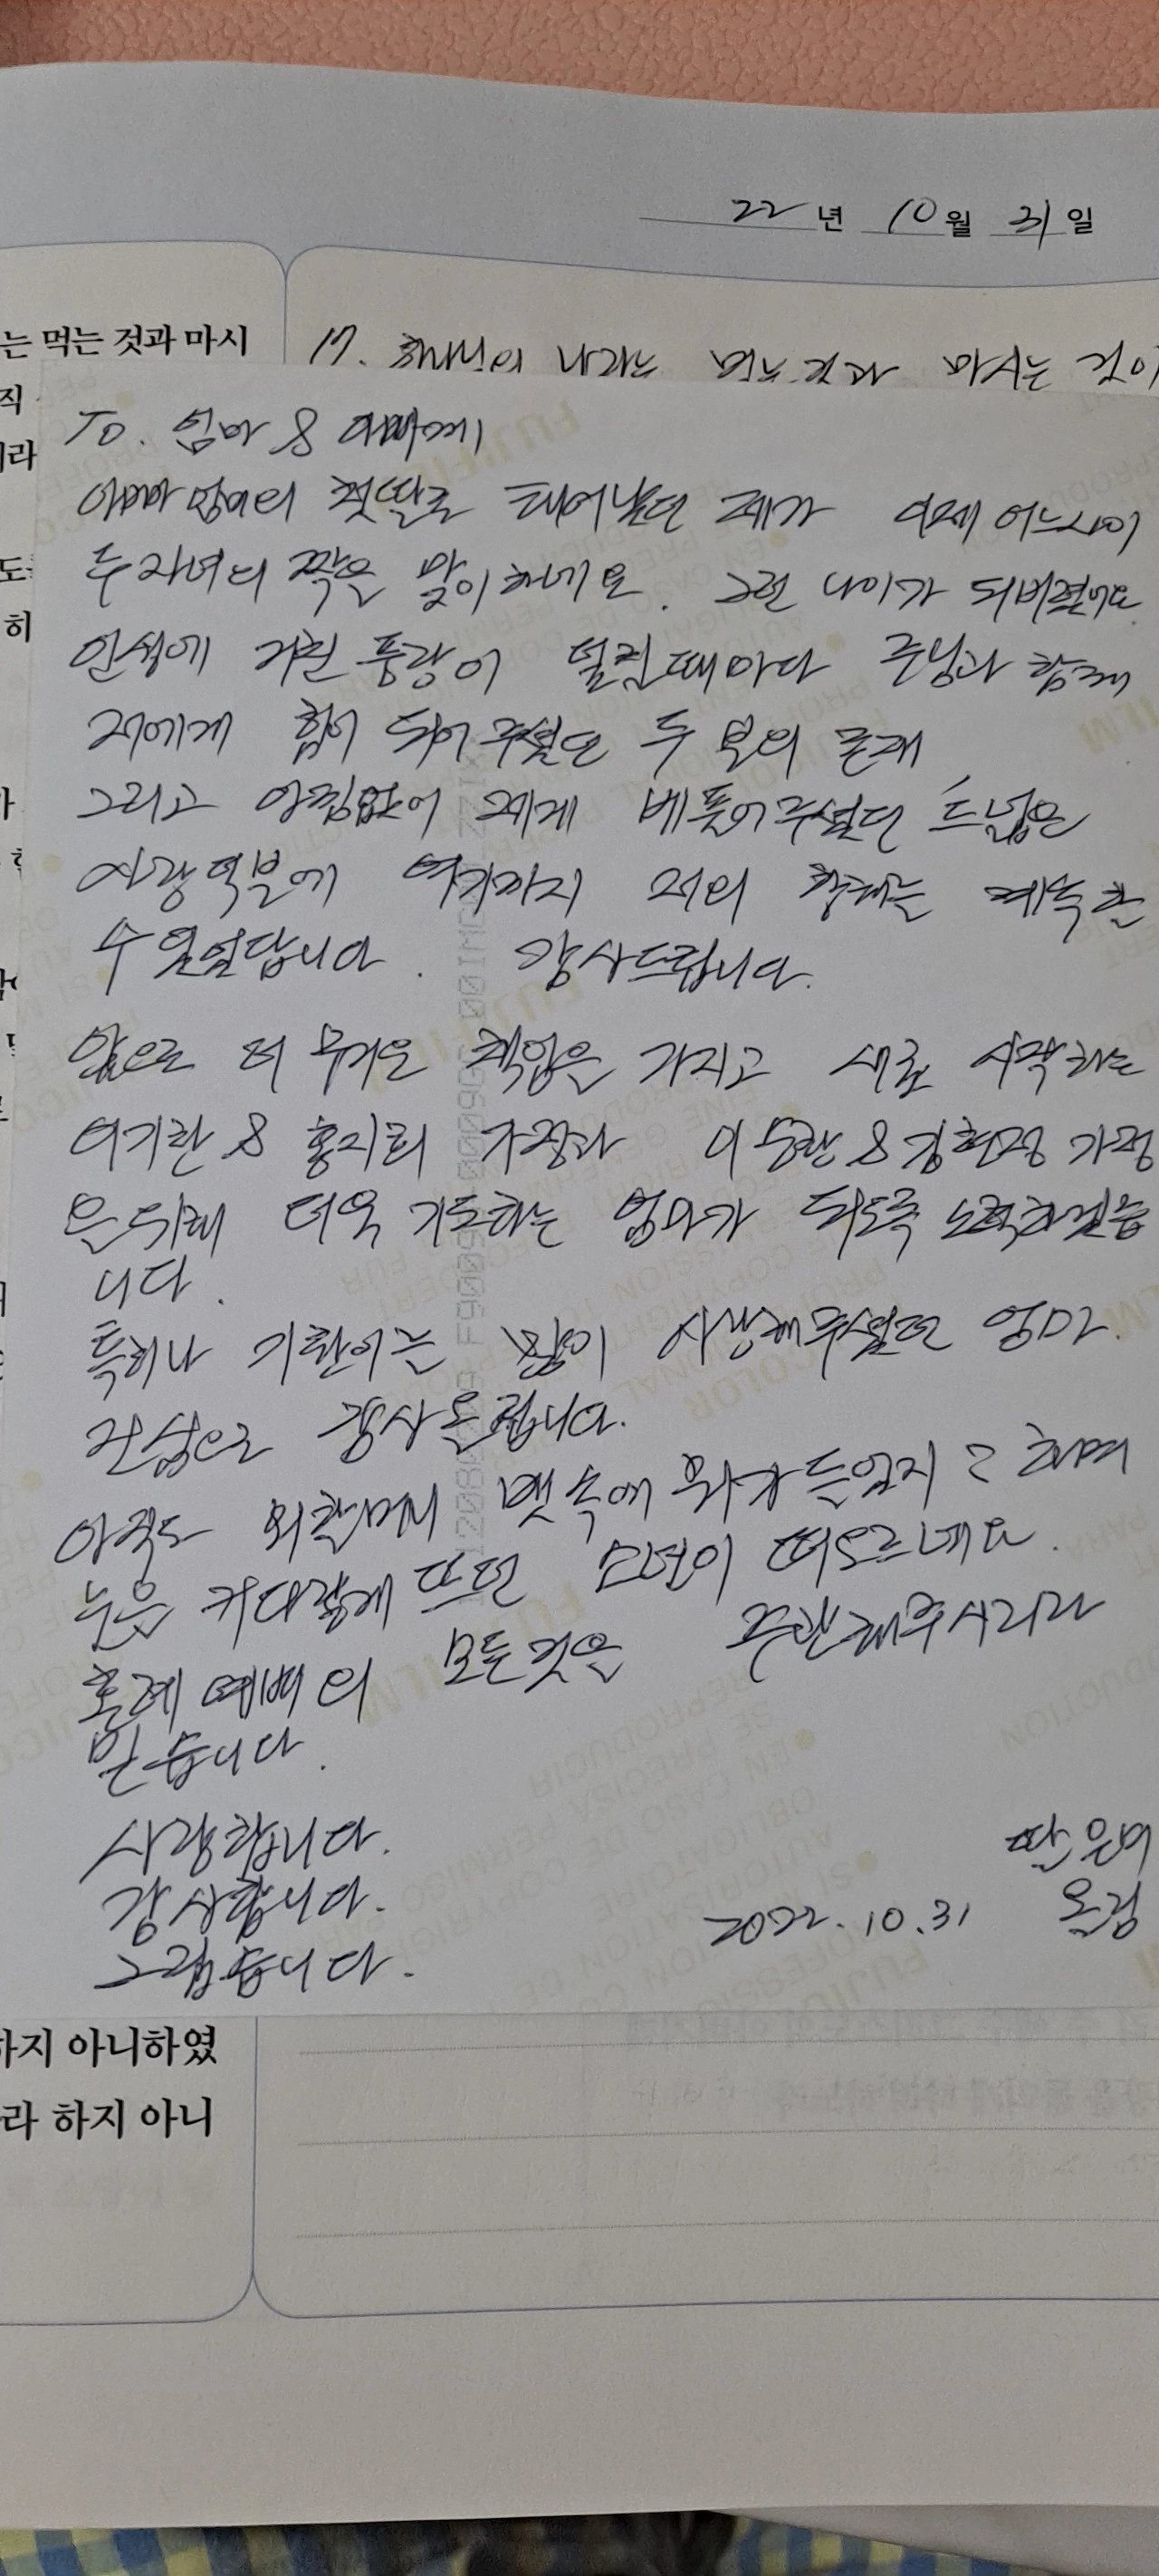 22년 10월 31일
는 먹는 것과 마시
17. 하나님의 나라는 먹는 것과 마시는 것이
직
To. 엄마 & 아빠께
이라
아빠 엄마의 첫딸로 태어났던 제가 이제 어느사이
두 자녀의 짝을 맞이하네요. 그런 나이가 되버렸어요
도
히
인생에 거친 풍랑이 밀릴때마다 주님과 함께
저에게 힘이 되어주셨던 두 분의 존재
그리고 아낌없이 제게 베풀어주셨던 드넓은
사랑덕분에 여기까지 저의 항해는 계속 할
수 있었답니다. 감사드립니다.
앞으로 더 무거운 책임을 가지고 새로 시작하는
이기환 & 홍지희 가정과 이동환 & 김현정 가정
을 위해 더욱 기도하는 엄마가 되도록 노력하겠습
니다.
특히나 기환이를 많이 사랑해주셨던 엄마.
진심으로 감사올립니다.
아직도 외할머니 뱃속에 뭐가 들었지? 하며
눈을 커다랗게 뜨던 모션이 떠오르네요.
혼례 예배의 모든것을 주관해주시리라
믿습니다.
사랑합니다.
감사합니다.
그립습니다.
딸 은이
올림
2022.10.31
하지 아니하였
라 하지 아니